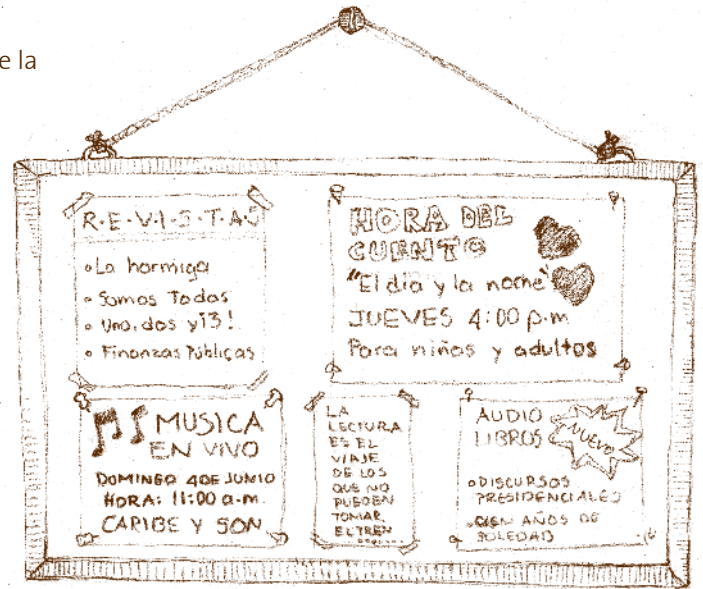 e la
R·E·V·I·S·T·A·S
• La hormiga
• Somos Todas
• Uno, dos y ¡3!
• Finanzas Públicas
HORA DEL
CUENTO
"El día y la noche"
JUEVES 4:00 p.m
Para niños y adultos
MUSICA
EN VIVO
DOMINGO 4 DE JUNIO
HORA: 11:00 a.m.
CARIBE Y SON
LA
LECTURA
ES EL
VIAJE
DE LOS
QUE NO
PUEDEN
TOMAR
EL TREN
AUDIO
LIBROS
NUEVO
• DISCURSOS
PRESIDENCIALES
• CIEN AÑOS DE
SOLEDAD